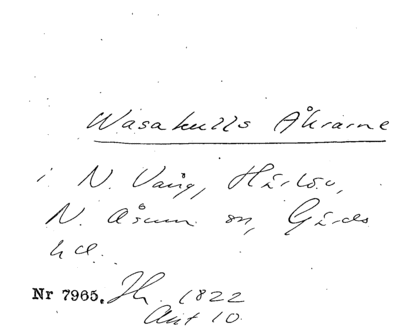 Wasakulls Åkrarne
i N. Vång, Härlöv,
N. Åsum sn, Gärds
hd.
Nr 7965. Jh. 1822
Akt 10